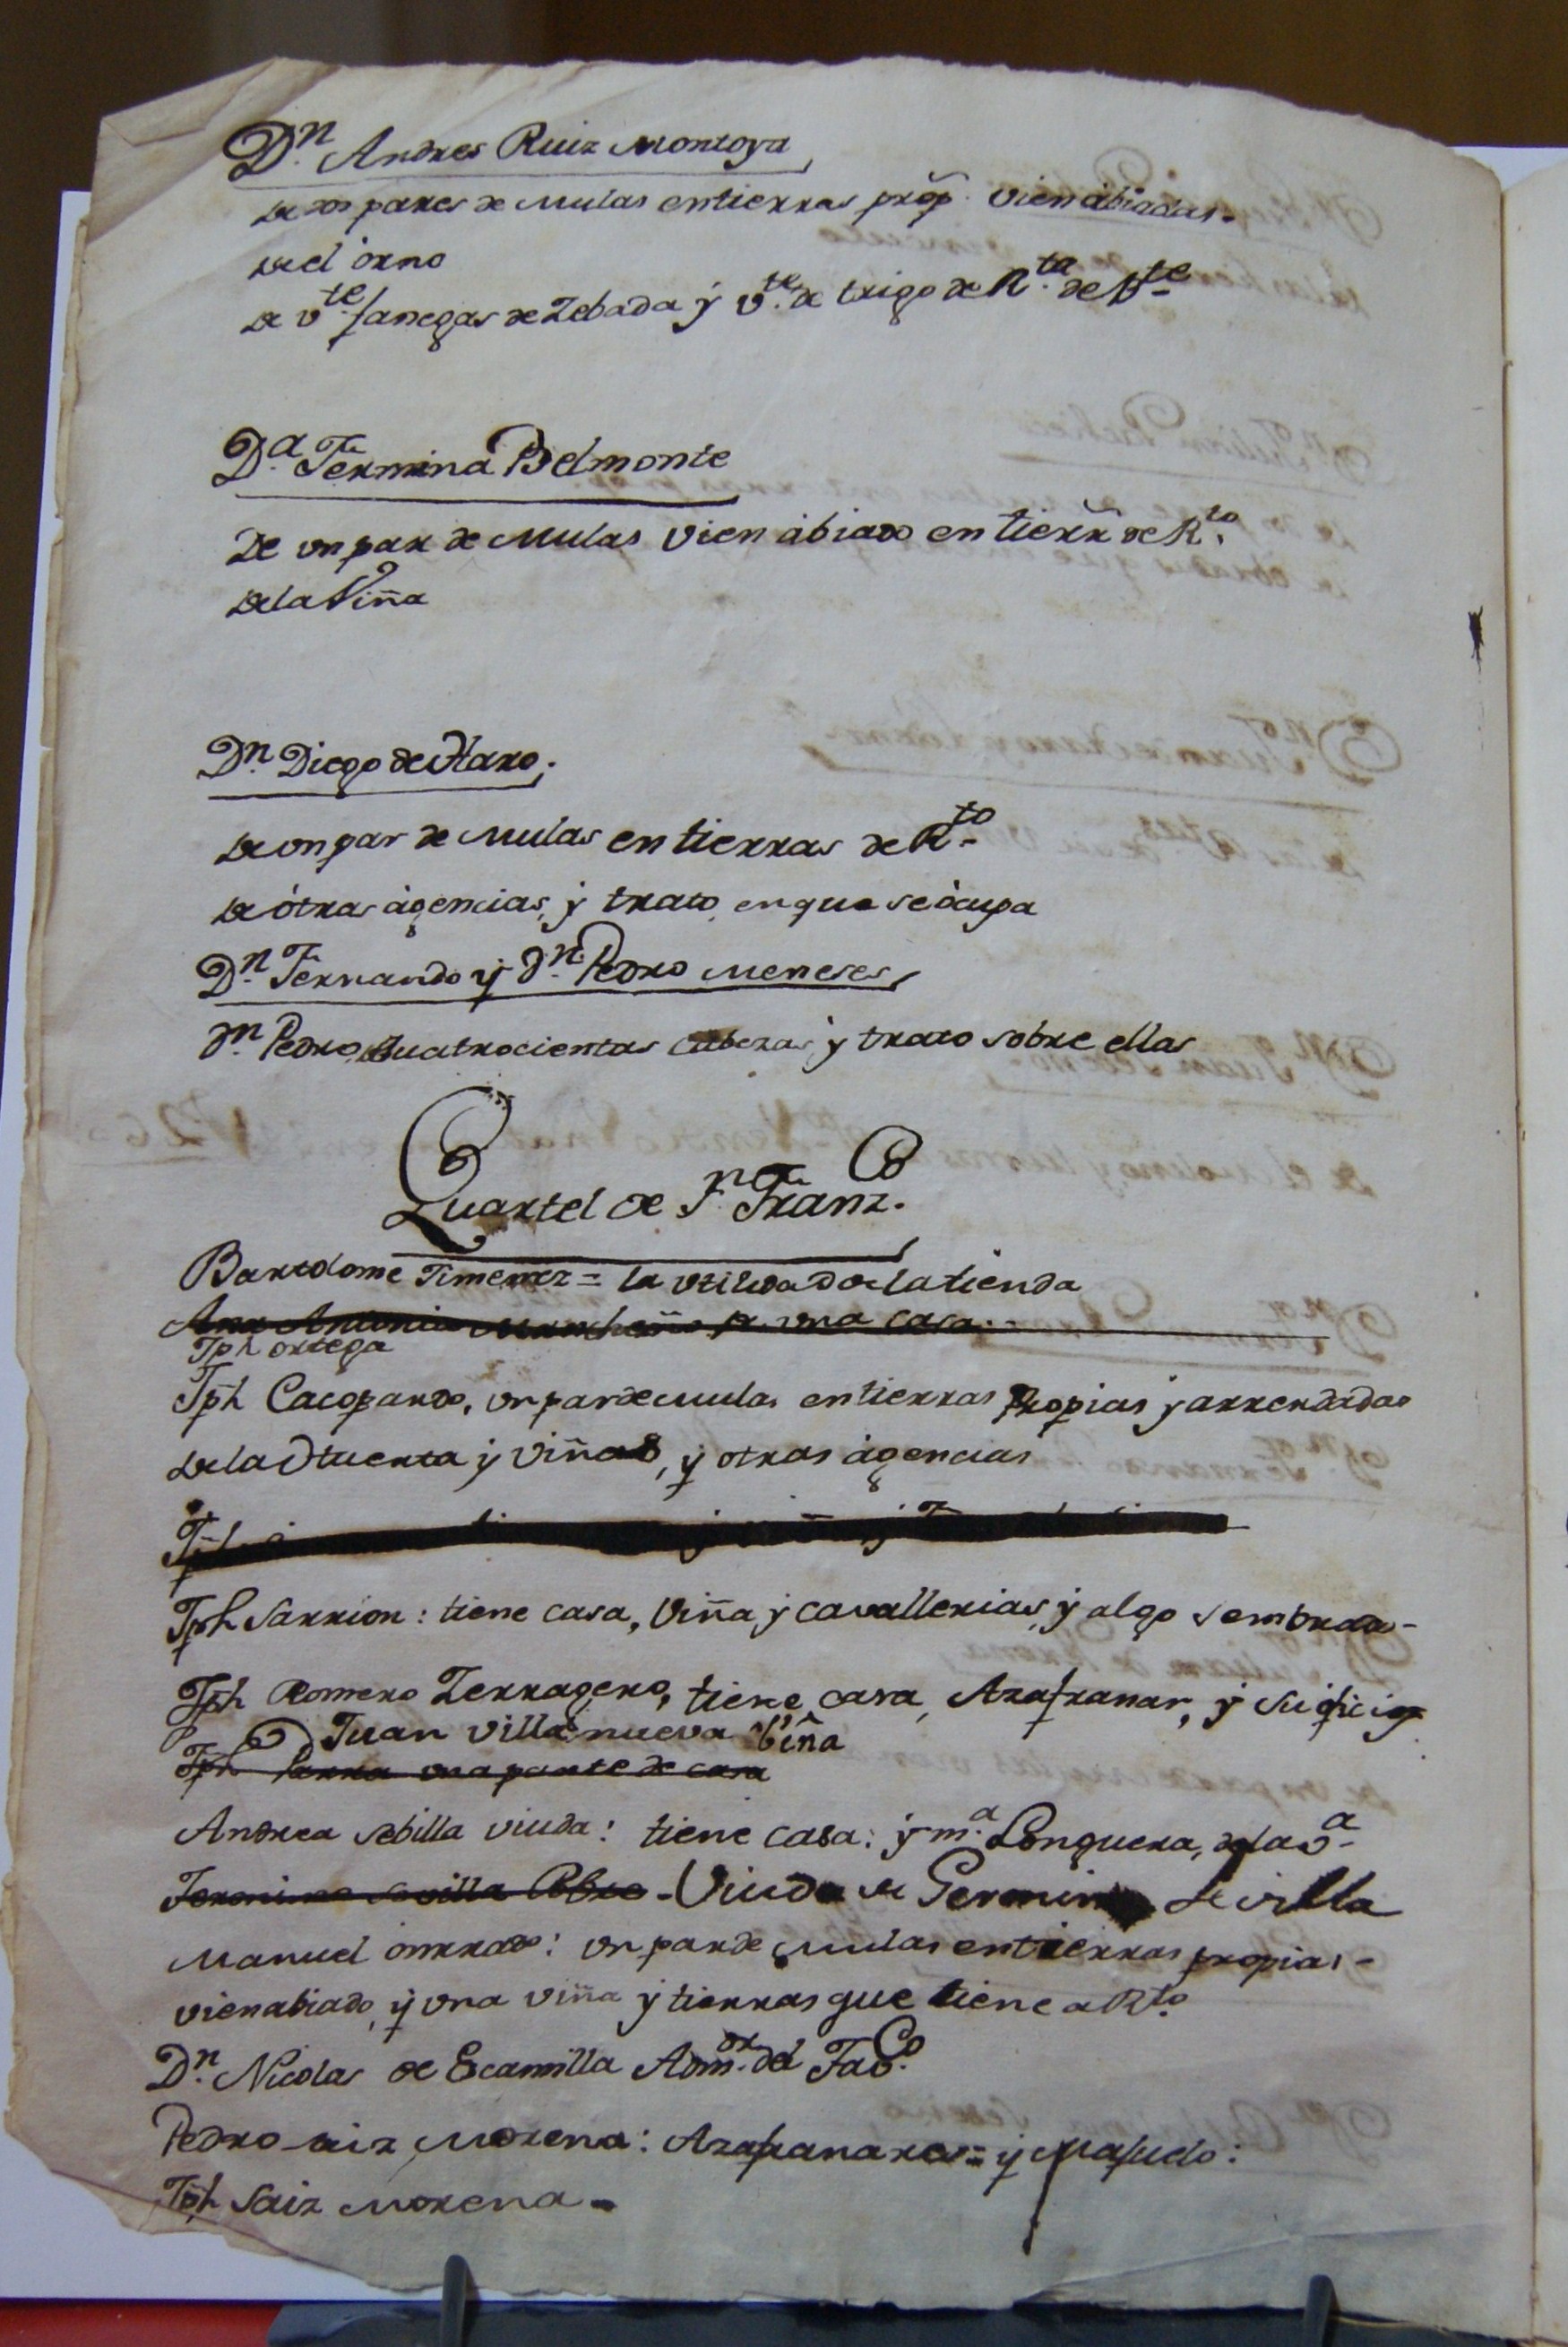 Dn. Andres Ruiz Montoya
De dos pares de Mulas entierras prop. vien abiadas.
del orno
de vte. fanegas de Zebada y vte. de trigo de Rta. de Vte.
Da. Fermina Belmonte
De un par de Mulas vien abiado en tierr de Rto.
dela Viña
Dn. Diego de Haro.
de un par de Mulas en tierras de Rto.
de otras agencias, y trato, enque se ocupa
Dn. Fernando y dn. Pedro Meneses,
dn. Pedro, quatrocientas Cabezas, y trato sobre ellas
Quartel de Sn. Franzco.
Bartolome Jimenez = la utilidad de la tienda
Ana Antonia una casa.
Jph ortega
Jph Cacopardo, un par de mulas entierras Propias y arrendadas
de la Huerta y Viñas, y otras agencias
Jph Sarrion: tiene casa, Viña y cavallerias, y algo sembrado-
Jph Romero Zerragero, tiene casa, Azafranar, y su oficio
Juan Villanueva Viña
Jph Parra una parte de casa
Andrea Sebilla viuda: tiene Casa: y ma. Conquera, de la va.
Jeronimo Sevilla Pobre - Viuda de Geronimo Sevilla
Manuel onrrado: un par de Mulas entierras propias-
vienabiado, y una viña y tierras que tiene a Rto.
Dn. Nicolas de Escamilla Admor. del Tabco.
Pedro saiz Morena: Azafranares = y Majuelo:
Jph Saiz Morena-